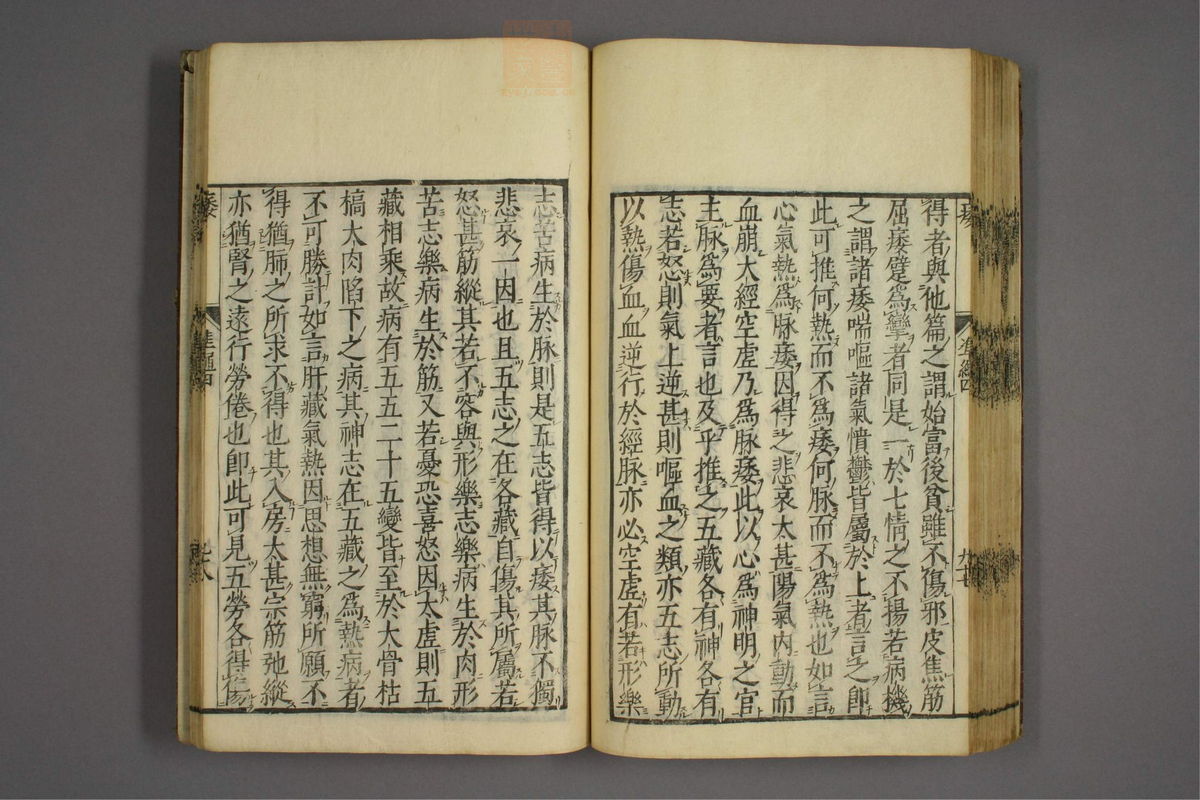 得者與他篇之謂始富後貧雖不傷邪皮焦筋
屈痿躄爲攣者同是一於七情之不揚若病機
之謂諸痿喘嘔諸氣憤鬱皆屬於上者言之卽
此可推何熱而不爲痿何脉而不爲熱也如言
心氣熱爲脉痿因得之悲哀太甚陽氣內動而
血崩大經空虛乃爲脉痿此以心爲神明之官
主脉爲要者言也及乎推之五藏各有神各有
志若怒則氣上逆甚則嘔血之類亦五志所動
以熱傷血血逆行於經脉亦必空虛有若形樂
志苦病生於脉則是五志皆得以痿其脉不獨
悲哀一因也且五志之在各藏自傷其所屬若
怒甚筋縱其若不容與形樂志樂病生於肉形
苦志樂病生於筋又若憂恐喜怒因太虛則五
藏相乘故病有五五二十五變皆至於大骨枯
槁大肉陷下之病其神志在五藏之爲熱病者
不可勝計如言肝藏氣熱因思想無窮所願不
得猶肺之所求不得也其入房太甚宗筋弛縱
亦猶腎之遠行勞倦也卽此可見五勞各得傷
痿